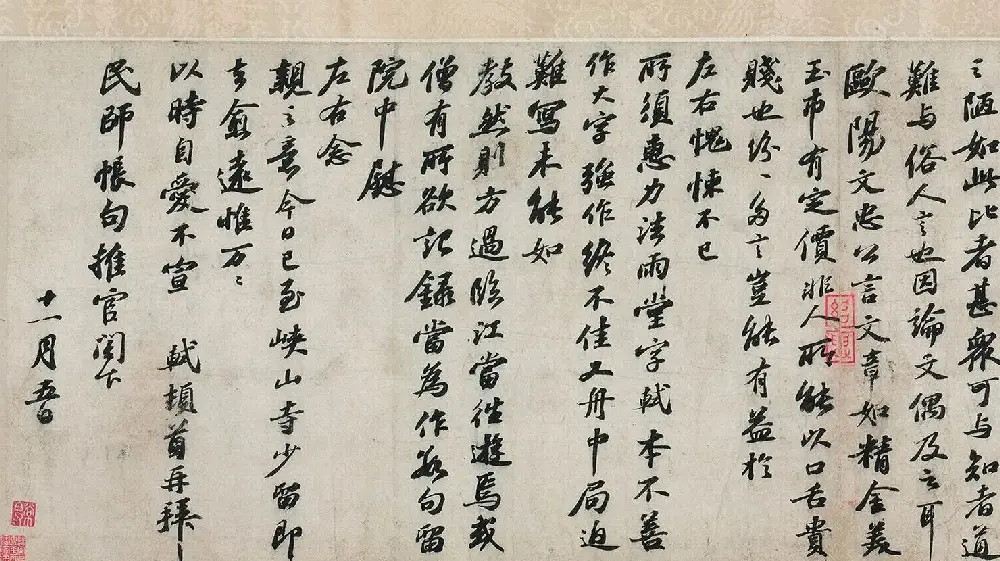 之陋如此比者甚众可与知者道
難与俗人言也因論文偶及之耳
歐陽文忠公言文章如精金美
玉市有定價非人所能以口舌貴
賤也紛〻多言豈能有益於
左右愧悚不已
所須惠力法雨堂字軾本不善
作大字強作終不佳又舟中局迫
難寫未能如
教然則方過臨江當往遊焉或
僧有所欲記録當為作數句留
院中慰
左右念
親之意今日已至峽山寺少留即
去愈遠惟万〻
以時自愛不宣 軾頓首再拜
民師帳句推官閤下
十一月五日